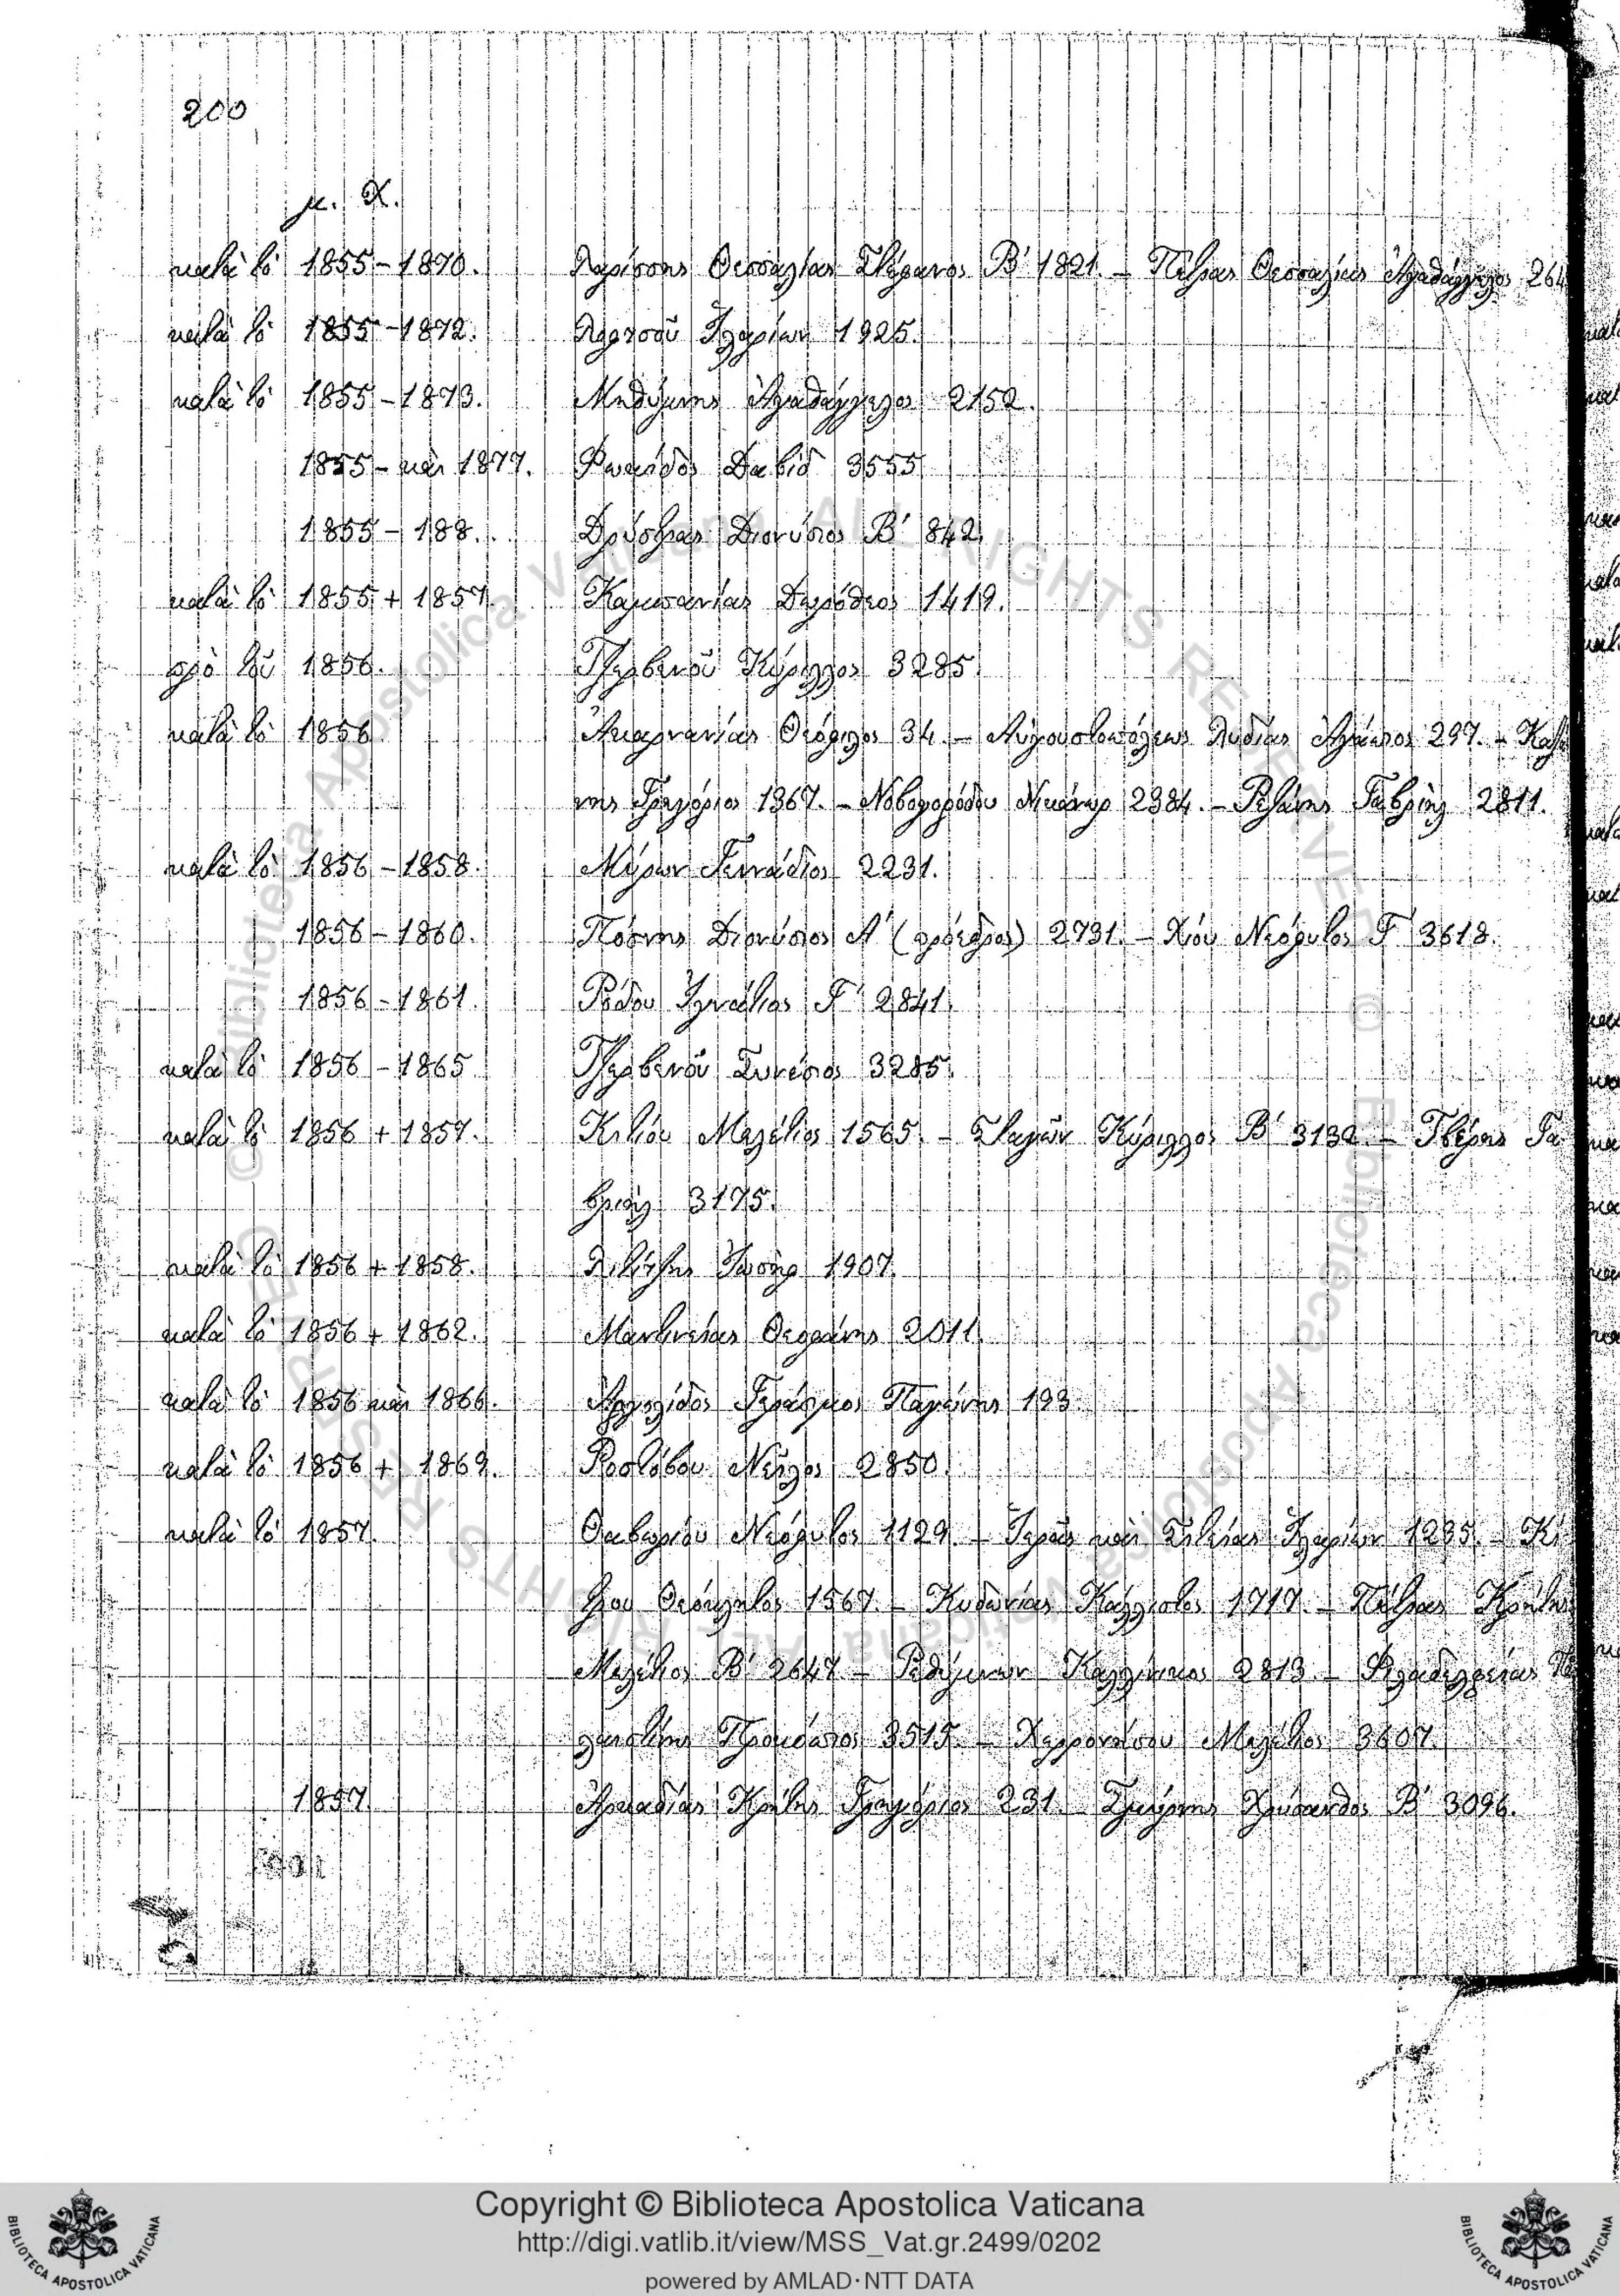 200
μ. Χ.
κατὰ τὸ 1855 - 1870. Λαρίσσης Θεσσαλίας Στέφανος Β΄ 1821. - Πέτρας Θεσσαλίας Ἀγαθάγγελος 264
κατὰ τὸ 1855 - 1872. Ἱλαρίων 1925.
κατὰ τὸ 1855 - 1873. Μηθύμνης Ἀγαθάγγελος 2152.
1855 - καὶ 1877. Φωκίδος Δαβὶδ 3555
1855 - 188.. Δρύστρας Διονύσιος Β΄ 842.
κατὰ τὸ 1855 + 1857. Καμπανίας Δωρόθεος 1419.
πρὸ τοῦ 1856. Τζερβενοῦ Κύριλλος 3285.
κατὰ τὸ 1856. Ἀκαρνανίας Θεόφιλος 34. - Αὐγουστουπόλεως Λυδίας Ἀγάπιος 297. - Καζά
νης Γρηγόριος 1367. - Νοβογορόδου Νικάνωρ 2384. - Ρεζάνης Γαβριὴλ 2811.
κατὰ τὸ 1856 - 1858. Μύρων Γεννάδιος 2231.
1856 - 1860. Πόσνης Διονύσιος Α΄ (πρόεδρος) 2731. - Χίου Νεόφυτος Γ΄ 3618.
1856 - 1861. Ρόδου Ἰγνάτιος Γ΄ 2841.
κατὰ τὸ 1856 - 1865 Τζερβενοῦ Συνέσιος 3285.
κατὰ τὸ 1856 + 1857. Κιβιόυ Μελέτιος 1565. - Σταγῶν Κύριλλος Β΄ 3132. - Τβέρης Γα
βριὴλ 3175.
κατὰ τὸ 1856 + 1858. Λιβίτζης Ἰωσὴφ 1907.
κατὰ τὸ 1856 + 1862. Μαντινείας Θεοφάνης 2011.
κατὰ τὸ 1856 καὶ 1866. Ἀργολίδος Γεράσιμος Παγώνης 193.
κατὰ τὸ 1856 + 1869. Ροστόβου Νεῖλος 2850.
κατὰ τὸ 1857. Θαβωρίου Νεόφυτος 1129. - Ἱερᾶς καὶ Σιτείας Ἱλαρίων 1235. - Κί
τρου Θεόκλητος 1567. - Κυδωνίας Κάλλιστος 1717. - Πέτρας Κρήτης
Μελέτιος Β΄ 2647. - Ρεθύμνων Καλλίνικος 2813. - Φιλαδελφείας Πα
λαιστίνης Προκόπιος 3515. - Χερρονήσου Μελέτιος 3607.
1857. Ἀρκαδίας Κρήτης Γρηγόριος 231. Σμύρνης Χρύσανθος Β΄ 3096.
Copyright © Biblioteca Apostolica Vaticana
http://digi.vatlib.it/view/MSS_Vat.gr.2499/0202
powered by AMLAD·NTT DATA